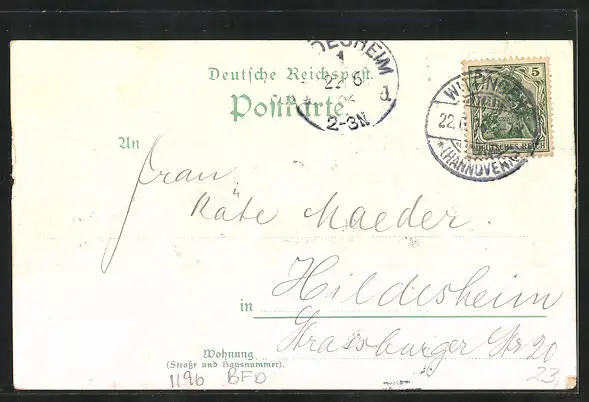 DESHEIM
1
22 6
2-3N
Deutsche Reichspost
Postkarte.
5
DEUTSCHES REICH
22.6.
*(HANNOVER)*
An
Frau
Käte Maeder.
in Hildesheim
Strassburger Str 20
Wohnung
(Straße und Hausnummer).
23,
1196 BFD